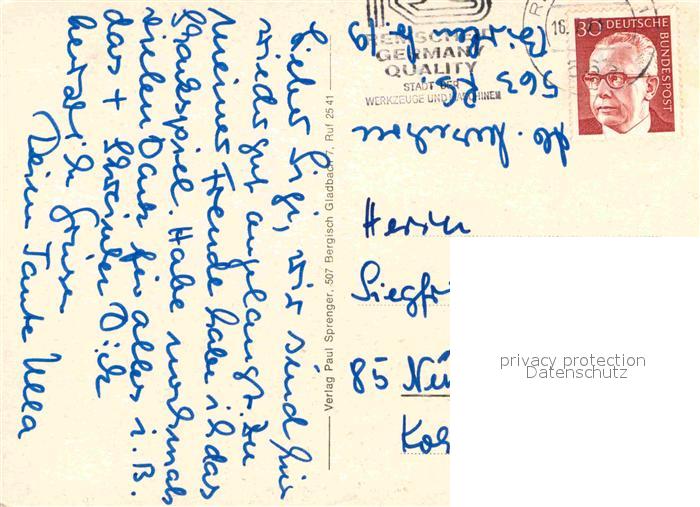 Lieber Sigi, wir sind hier
wieder gut angelangt. Zu
meiner Freude habe ich das
Skatspiel. Habe nochmals
vielen Dank für alles i. B.
das +
herzlich Grüsse
Deine Tante Ulla
Verlag Paul Sprenger, 507 Bergisch Gladbach 7, Ruf 25 41
REMSCHEID
GERMANY
QUALITY
STADT DER
WERKZEUGE UND MASCHINEN
16.
30 DEUTSCHE
BUNDESPOST
563 RS.
Herrn
Siegfri
85 Nü
privacy protection
Datenschutz